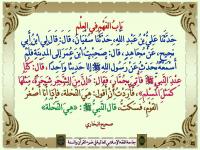 بَابُ الفَهْمِ فِي العِلْمِ
حَدَّثَنَا عَلِيُّ بْنُ عَبْدِ اللهِ، حَدَّثَنَا سُفْيَانُ، قَالَ: قَالَ لِي ابْنُ أَبِي
نَجِيحٍ، عَنْ مُجَاهِدٍ، قَالَ: صَحِبْتُ ابْنَ عُمَرَ إِلَى المَدِينَةِ فَلَمْ
أَسْمَعْهُ يُحَدِّثُ عَنْ رَسُولِ اللهِ ﷺ إِلَّا حَدِيثًا وَاحِدًا، قَالَ: كُنَّا
عِنْدَ النَّبِيِّ ﷺ فَأُتِيَ بِجُمَّارٍ، فَقَالَ: «إِنَّ مِنَ الشَّجَرِ شَجَرَةً، مَثَلُهَا
كَمَثَلِ المُسْلِمِ»، فَأَرَدْتُ أَنْ أَقُولَ: هِيَ النَّخْلَةُ، فَإِذَا أَنَا أَصْغَرُ
القَوْمِ، فَسَكَتُّ، قَالَ النَّبِيُّ ﷺ: «هِيَ النَّخْلَةُ»
صحيح البخاري